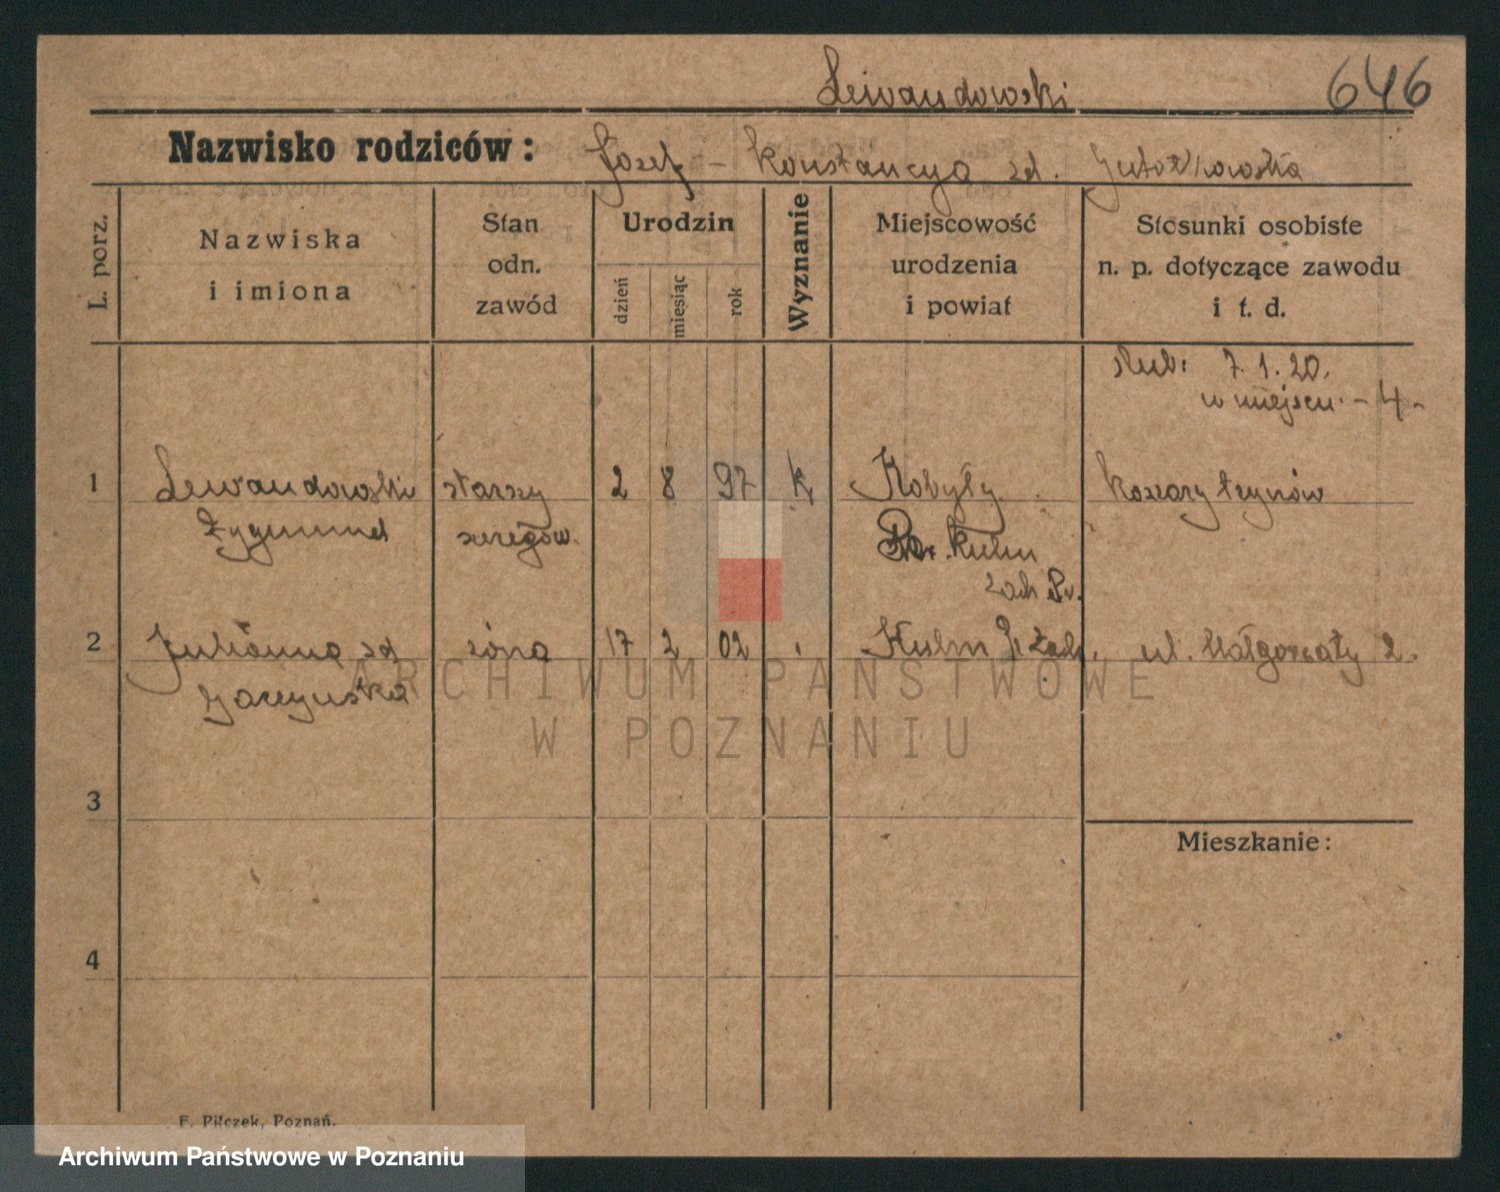 Lewandowski 646
Nazwisko rodziców: Józef – Konstancya zd.
L. porz.
Nazwiska
i imiona
Stan
odn.
zawód
Urodzin
dzień
miesiąc
rok
Wyznanie
Miejscowość
urodzenia
i powiat
Stosunki osobiste
n. p. dotyczące zawodu
i t. d.
ślub: 7. 1. 20.
w miejscu. – 4 –
1 Lewandowski starszy 2 8 97 k Kobyły koszary
Zygmund szeregow. Kulm
2 Julianna zd żona 17 2 02 Kulm ul. Małgorzaty 2.
3
Mieszkanie:
4
F. Pilczek, Poznań.
ARCHIWUM PAŃSTWOWE
W POZNANIU
Archiwum Państwowe w Poznaniu